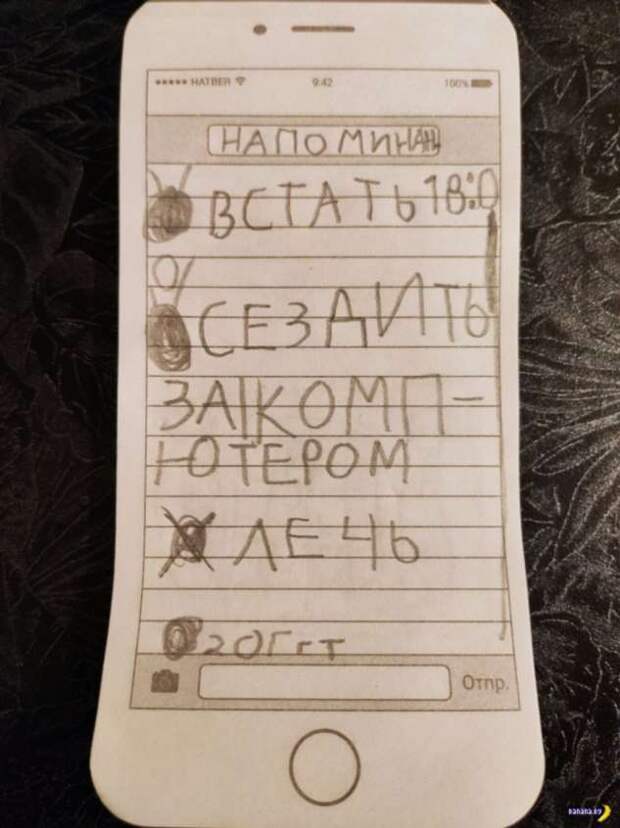 HATBER 9:42 100%
НАПОМИНАН
ВСТАТЬ 18:0
СЕЗДИТЬ
ЗА КОМП-
ЮТЕРОМ
ЛЕЧЬ
Отпр.
banana.by